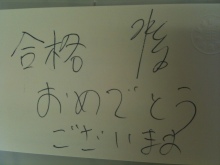 合格
おめでとう
ございます